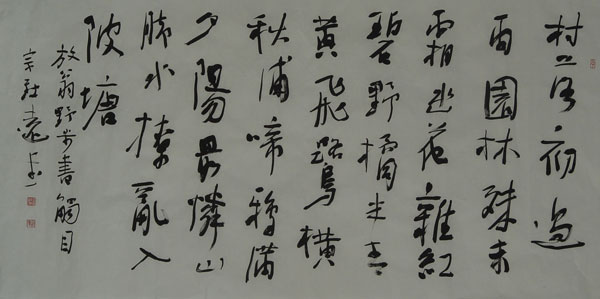 村落初過
雨園林殊未
霜幽花雜紅
碧野橘半青
黃飛鷺橫
秋浦啼鴉滿
夕陽最憐山
脚水撩亂入
陂塘
放翁野步書觸目